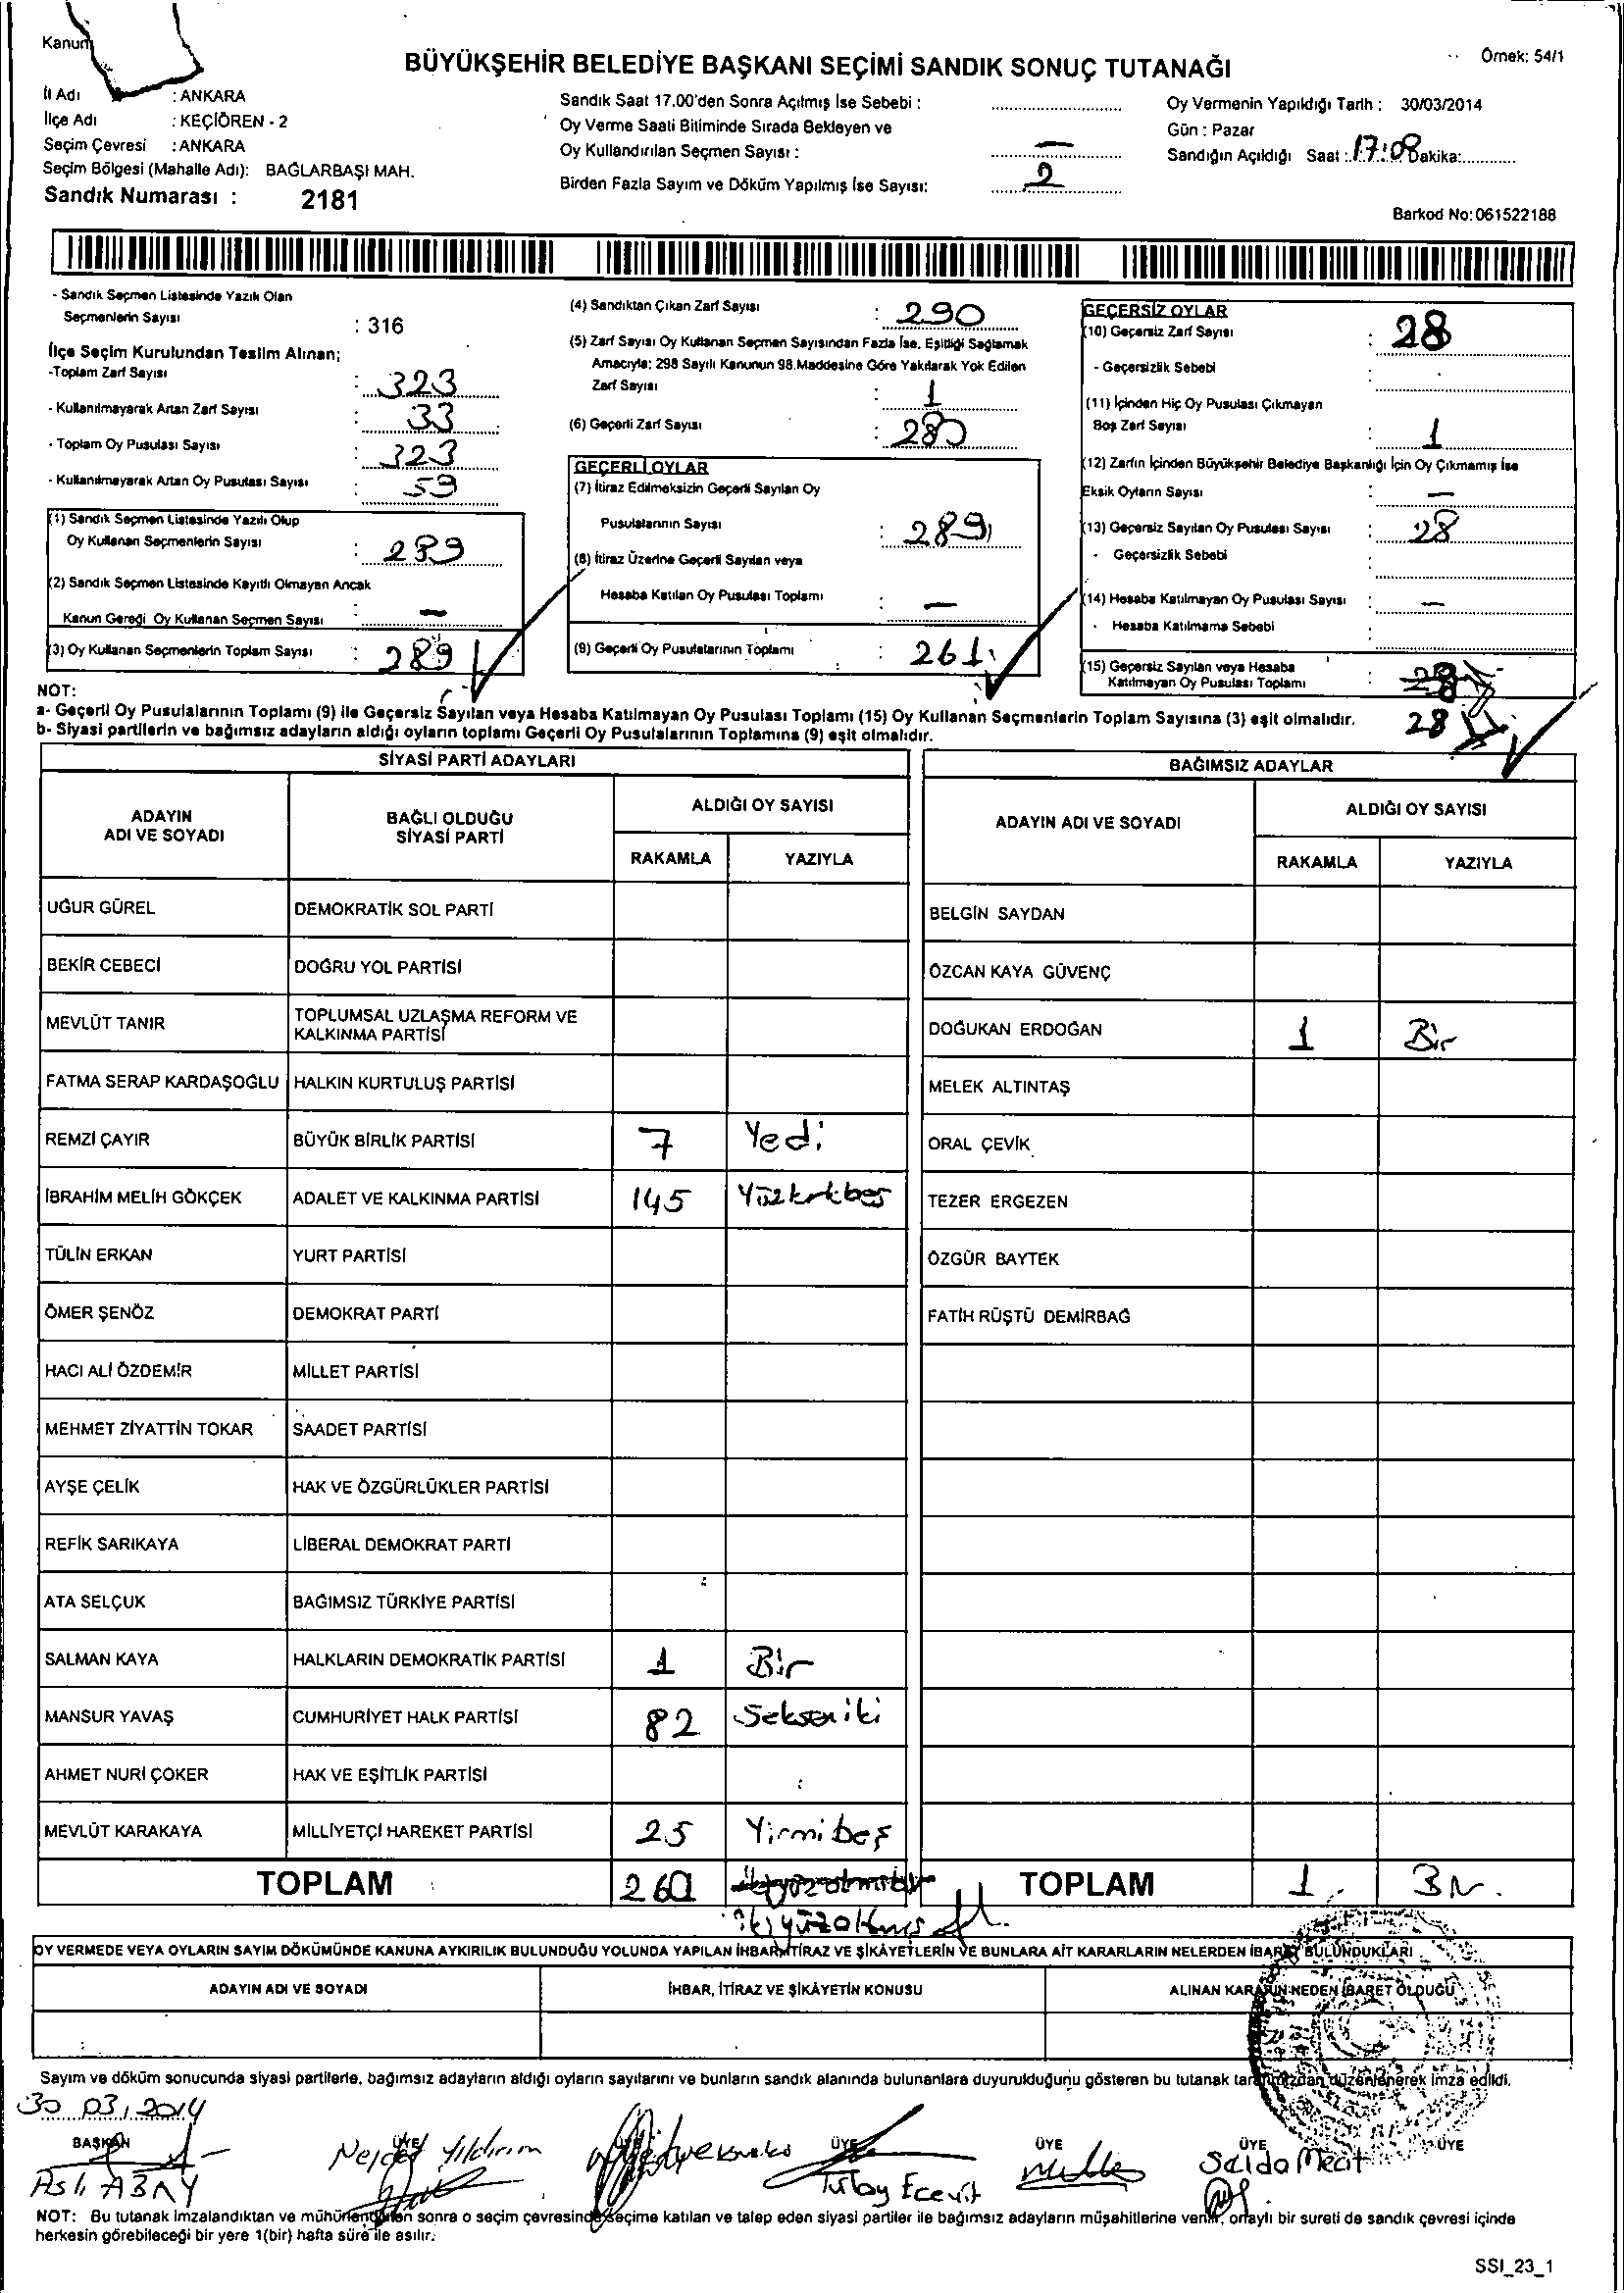 Kanun
Örnek: 54/1
BÜYÜKŞEHİR BELEDİYE BAŞKANI SEÇİMİ SANDIK SONUÇ TUTANAĞI
İl Adı : ANKARA
İlçe Adı : KEÇİÖREN - 2
Seçim Çevresi : ANKARA
Seçim Bölgesi (Mahalle Adı): BAĞLARBAŞI MAH.
Sandık Numarası : 2181
Sandık Saat 17.00'den Sonra Açılmış İse Sebebi :
Oy Verme Saati Bitiminde Sırada Bekleyen ve
Oy Kullandırılan Seçmen Sayısı : —
Birden Fazla Sayım ve Döküm Yapılmış İse Sayısı: 2
Oy Vermenin Yapıldığı Tarih : 30/03/2014
Gün : Pazar
Sandığın Açıldığı Saat : 17:08 Dakika:
Barkod No: 061522188
- Sandık Seçmen Listesinde Yazılı Olan
Seçmenlerin Sayısı : 316
İlçe Seçim Kurulundan Teslim Alınan;
-Toplam Zarf Sayısı : 323
- Kullanılmayarak Artan Zarf Sayısı : 33
- Toplam Oy Pusulası Sayısı : 323
- Kullanılmayarak Artan Oy Pusulası Sayısı :
(1) Sandık Seçmen Listesinde Yazılı Olup
Oy Kullanan Seçmenlerin Sayısı : 289
(2) Sandık Seçmen Listesinde Kayıtlı Olmayan Ancak
Kanun Gereği Oy Kullanan Seçmen Sayısı : —
(3) Oy Kullanan Seçmenlerin Toplam Sayısı : 289
(4) Sandıktan Çıkan Zarf Sayısı : 290
(5) Zarf Sayısı Oy Kullanan Seçmen Sayısından Fazla İse, Eşitliği Sağlamak
Amacıyla; 298 Sayılı Kanunun 98.Maddesine Göre Yakılarak Yok Edilen
Zarf Sayısı : 1
(6) Geçerli Zarf Sayısı :
GEÇERLİ OYLAR
(7) İtiraz Edilmeksizin Geçerli Sayılan Oy
Pusulalarının Sayısı : 289
(8) İtiraz Üzerine Geçerli Sayılan veya
Hesaba Katılan Oy Pusulası Toplamı : —
(9) Geçerli Oy Pusulalarının Toplamı : 261
GEÇERSİZ OYLAR
(10) Geçersiz Zarf Sayısı : 28
- Geçersizlik Sebebi :
(11) İçinden Hiç Oy Pusulası Çıkmayan
Boş Zarf Sayısı : 1
(12) Zarfın İçinden Büyükşehir Belediye Başkanlığı İçin Oy Çıkmamış İse
Eksik Oyların Sayısı : —
(13) Geçersiz Sayılan Oy Pusulası Sayısı : 28
- Geçersizlik Sebebi
(14) Hesaba Katılmayan Oy Pusulası Sayısı : —
- Hesaba Katılmama Sebebi :
(15) Geçersiz Sayılan veya Hesaba
Katılmayan Oy Pusulası Toplamı :
28
NOT:
a- Geçerli Oy Pusulalarının Toplamı (9) ile Geçersiz Sayılan veya Hesaba Katılmayan Oy Pusulası Toplamı (15) Oy Kullanan Seçmenlerin Toplam Sayısına (3) eşit olmalıdır.
b- Siyasi partilerin ve bağımsız adayların aldığı oyların toplamı Geçerli Oy Pusulalarının Toplamına (9) eşit olmalıdır.
SİYASİ PARTİ ADAYLARI
ADAYIN ADI VE SOYADI BAĞLI OLDUĞU SİYASİ PARTİ ALDIĞI OY SAYISI
RAKAMLA YAZIYLA
UĞUR GÜREL DEMOKRATİK SOL PARTİ
BEKİR CEBECİ DOĞRU YOL PARTİSİ
MEVLÜT TANIR TOPLUMSAL UZLAŞMA REFORM VE
KALKINMA PARTİSİ
FATMA SERAP KARDAŞOĞLU HALKIN KURTULUŞ PARTİSİ
REMZİ ÇAYIR BÜYÜK BİRLİK PARTİSİ 7 Yedi
İBRAHİM MELİH GÖKÇEK ADALET VE KALKINMA PARTİSİ 145 Yüzkırkbeş
TÜLİN ERKAN YURT PARTİSİ
ÖMER ŞENÖZ DEMOKRAT PARTİ
HACI ALİ ÖZDEMİR MİLLET PARTİSİ
MEHMET ZİYATTİN TOKAR SAADET PARTİSİ
AYŞE ÇELİK HAK VE ÖZGÜRLÜKLER PARTİSİ
REFİK SARIKAYA LİBERAL DEMOKRAT PARTİ
ATA SELÇUK BAĞIMSIZ TÜRKİYE PARTİSİ
SALMAN KAYA HALKLARIN DEMOKRATİK PARTİSİ 1 Bir
MANSUR YAVAŞ CUMHURİYET HALK PARTİSİ 82 Sekseniki
AHMET NURİ ÇOKER HAK VE EŞİTLİK PARTİSİ
MEVLÜT KARAKAYA MİLLİYETÇİ HAREKET PARTİSİ 25 Yirmibeş
TOPLAM 260
ikiyüzaltmış
BAĞIMSIZ ADAYLAR
ADAYIN ADI VE SOYADI ALDIĞI OY SAYISI
RAKAMLA YAZIYLA
BELGİN SAYDAN
ÖZCAN KAYA GÜVENÇ
DOĞUKAN ERDOĞAN 1 Bir
MELEK ALTINTAŞ
ORAL ÇEVİK
TEZER ERGEZEN
ÖZGÜR BAYTEK
FATİH RÜŞTÜ DEMİRBAĞ
TOPLAM 1 Bir.
OY VERMEDE VEYA OYLARIN SAYIM DÖKÜMÜNDE KANUNA AYKIRILIK BULUNDUĞU YOLUNDA YAPILAN İHBAR, İTİRAZ VE ŞİKÂYETLERİN VE BUNLARA AİT KARARLARIN NELERDEN İBARET BULUNDUKLARI
ADAYIN ADI VE SOYADI İHBAR, İTİRAZ VE ŞİKÂYETİN KONUSU ALINAN KARARIN NEDEN İBARET OLDUĞU
Sayım ve döküm sonucunda siyasi partilerle, bağımsız adayların aldığı oyların sayılarını ve bunların sandık alanında bulunanlara duyurulduğunu gösteren bu tutanak tarafımızdan düzenlenerek imza edildi.
30.03.2014
BAŞKAN ÜYE ÜYE ÜYE ÜYE ÜYE ÜYE
Nejdet Yıldırım
Tülay Ecevit
NOT: Bu tutanak imzalandıktan ve mühürlendikten sonra o seçim çevresinde seçime katılan ve talep eden siyasi partiler ile bağımsız adayların müşahitlerine verilir, onaylı bir sureti de sandık çevresi içinde
herkesin görebileceği bir yere 1(bir) hafta süre ile asılır.
SSI_23_1